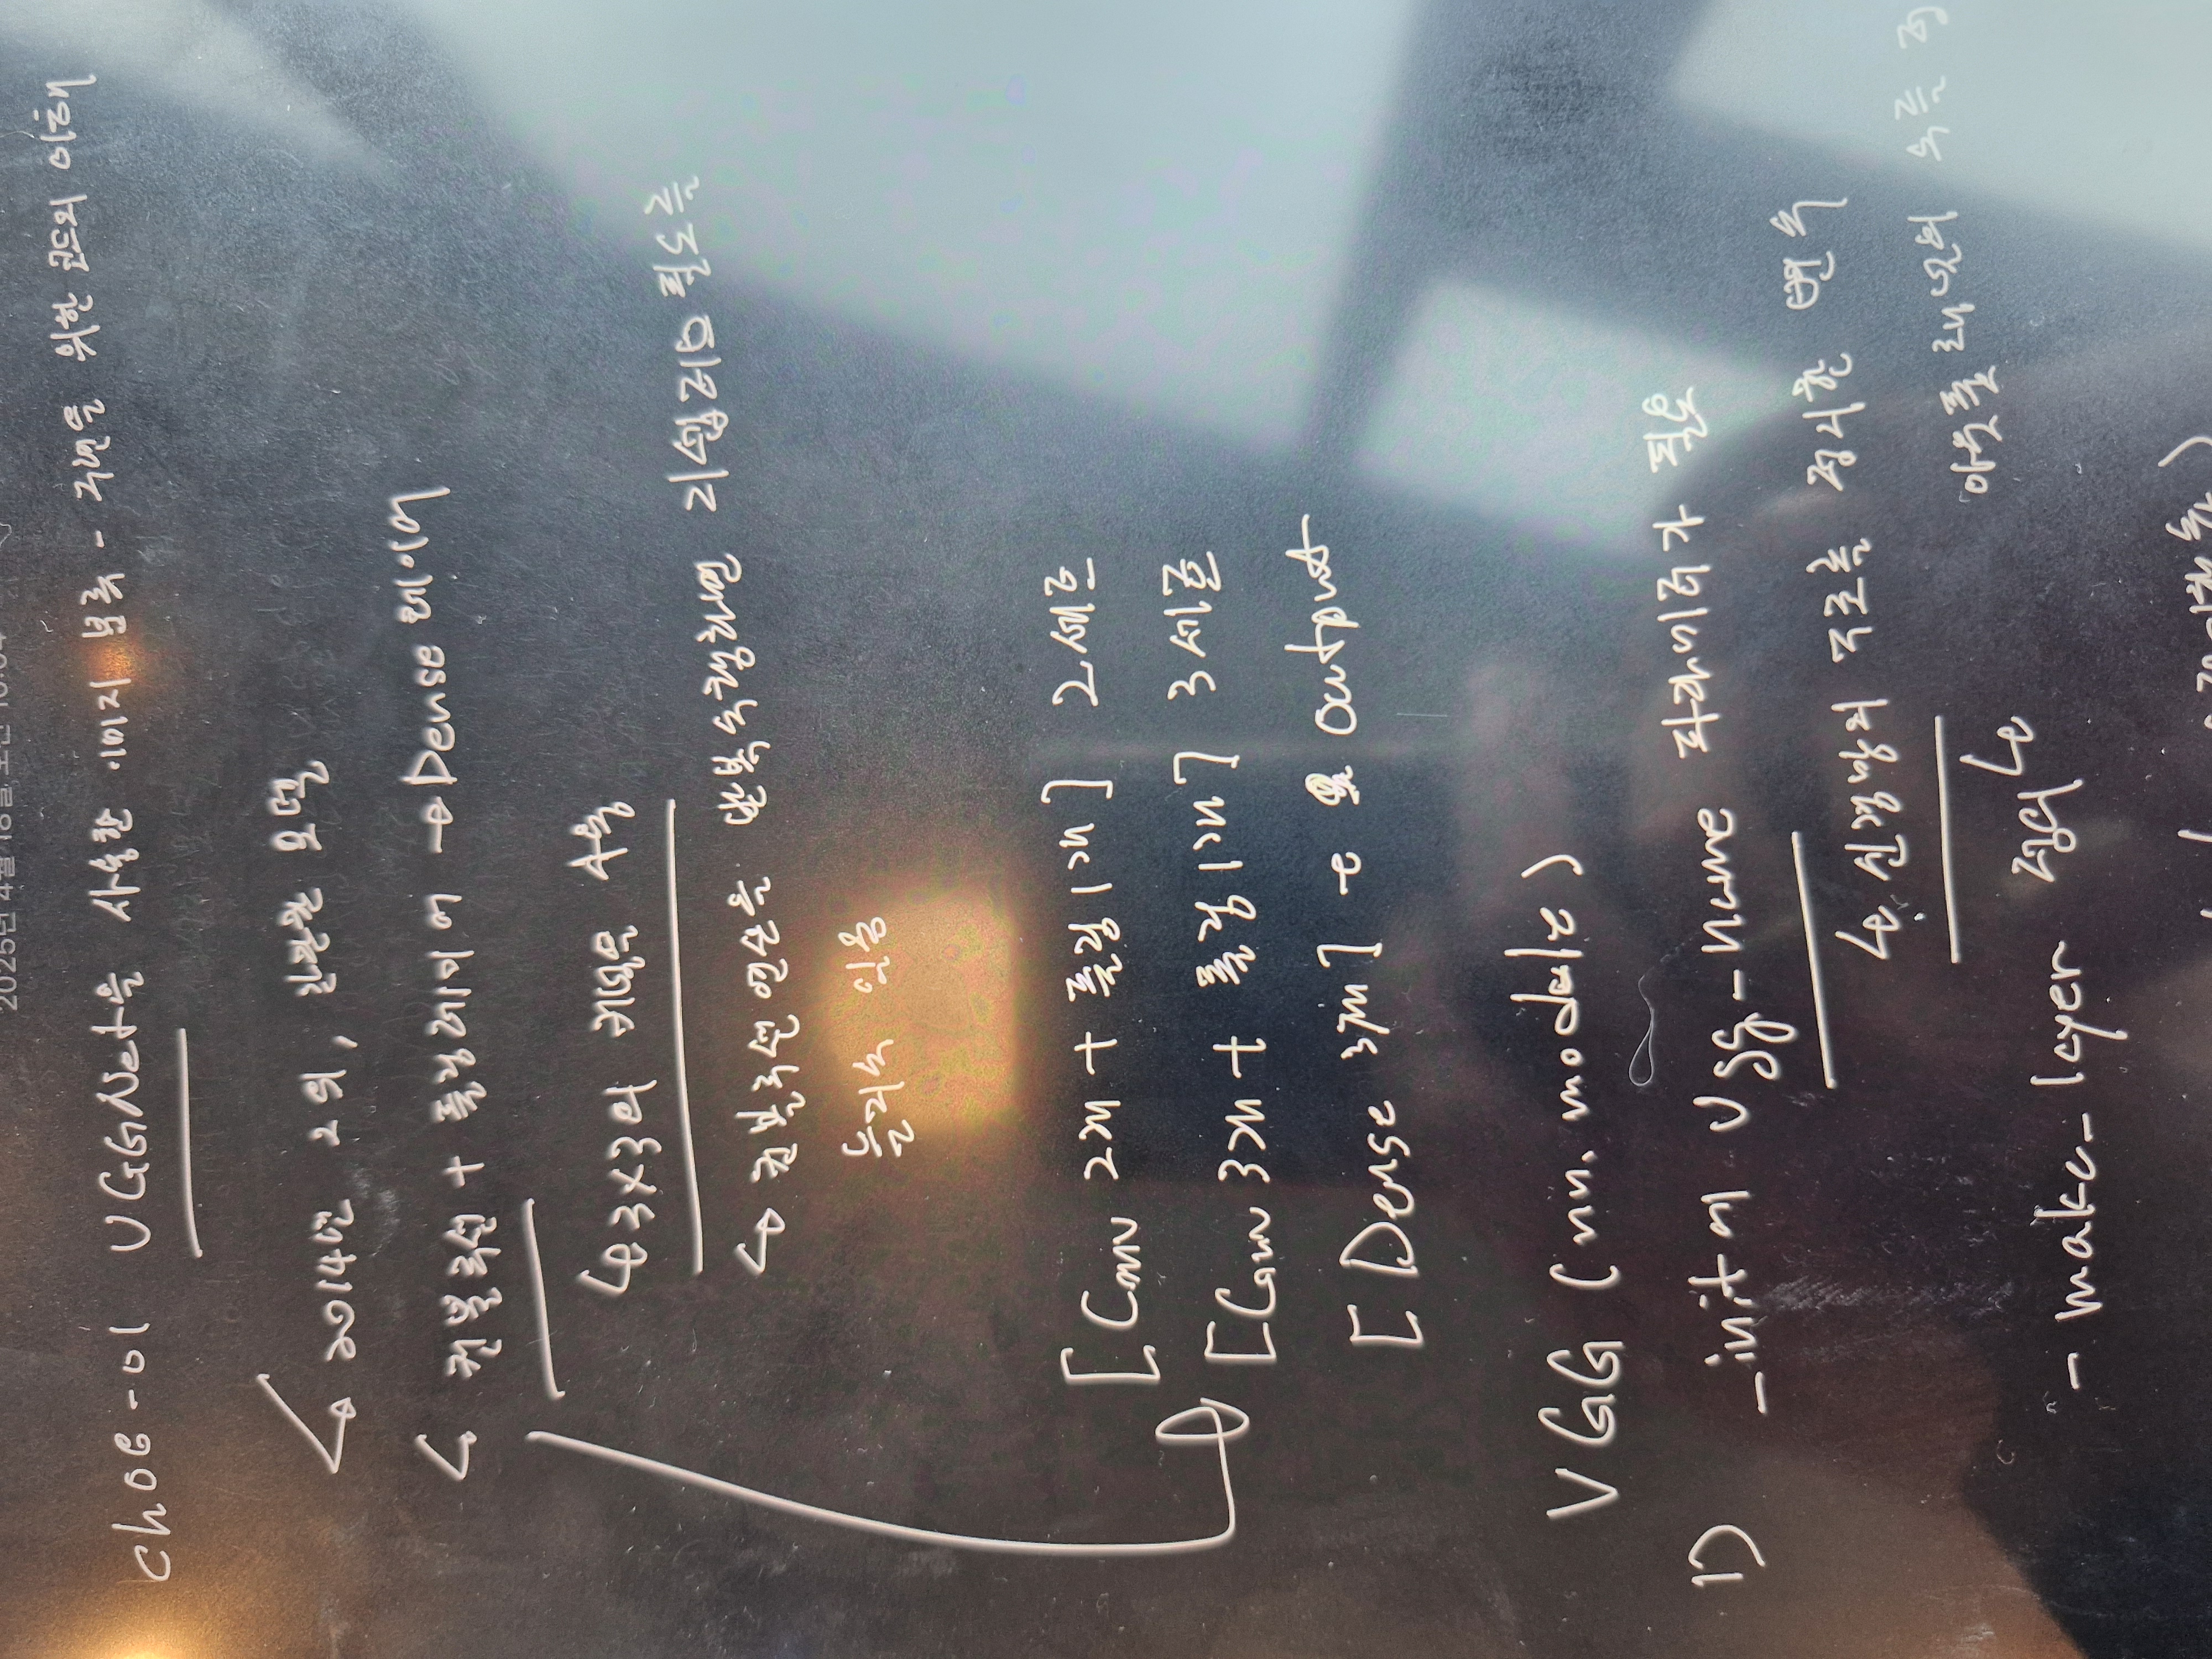 2025년 4월 18일, 오전 10:04
Ch08-01 VGGNet을 사용한 이미지 분류 - 구현을 위한 코드의 이해
↳ 2014년 2위, 간단한 모델
↳ 컨볼루션 + 풀링레이어 → Dense 레이어
↳ 3x3의 커널만 사용
↳ 컨볼루션 연산을 반복수행함에 기하급수적 필드를
늘리지 않음
[Conv 2개 + 풀링 1개] 2세트
[Conv 3개 + 풀링 1개] 3세트
[Dense 3개] → output
VGG (nn.module)
1) - init에 vgg-name 파라미터가 들음
↳ 신경망의 구조를 정의한 변수
↳ 아웃풋 채널의 수를
- make-layer 정의